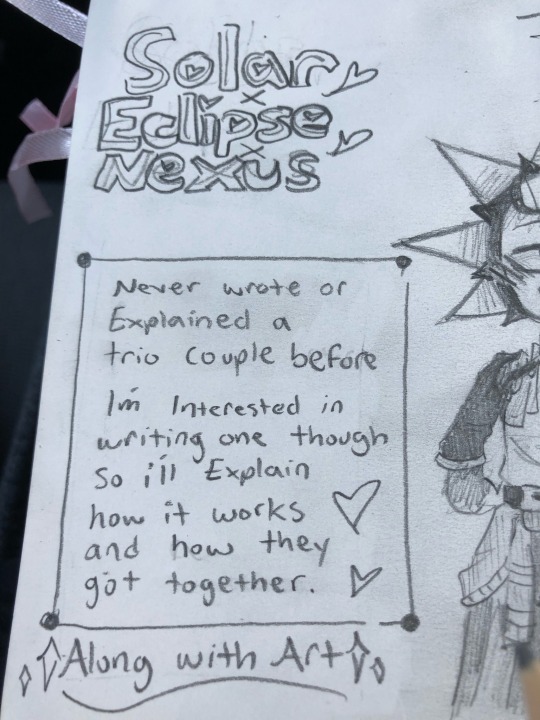 Solar
x
Eclipse
x
Nexus
Never wrote or
Explained a
trio couple before
I'm Interested in
writing one though
So i'll Explain
how it works
and how they
got together.
Along with Art